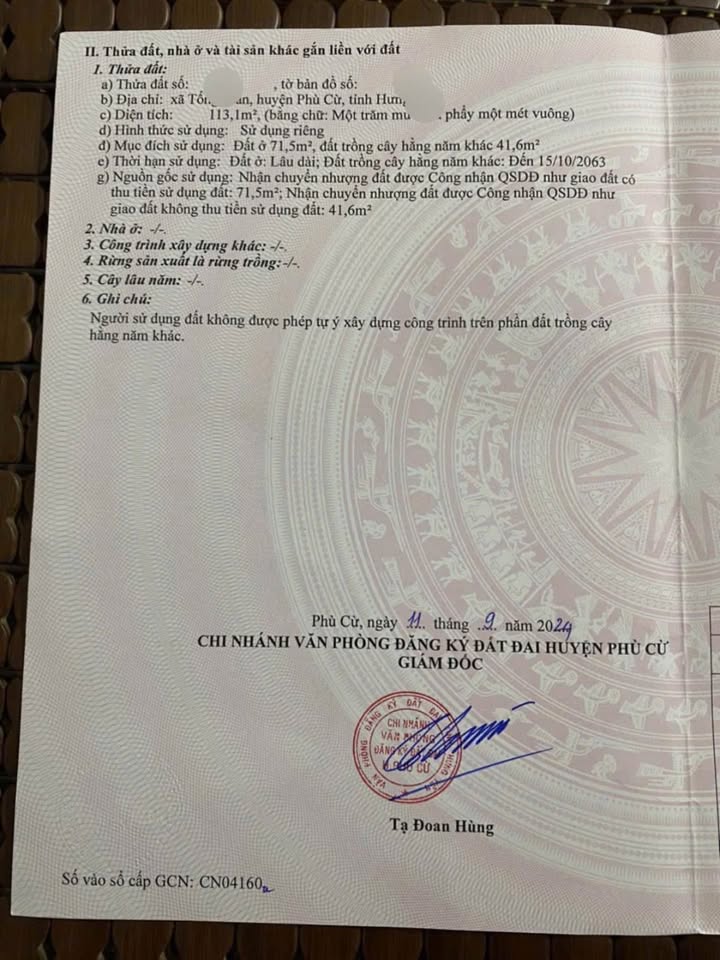 II. Thửa đất, nhà ở và tài sản khác gắn liền với đất
1. Thửa đất:
a) Thửa đất số: , tờ bản đồ số:
b) Địa chỉ: xã , huyện Phù Cừ, tỉnh
c) Diện tích: 113,1m², (bằng chữ: Một trăm phẩy một mét vuông)
d) Hình thức sử dụng: Sử dụng riêng
đ) Mục đích sử dụng: Đất ở 71,5m², đất trồng cây hằng năm khác 41,6m²
e) Thời hạn sử dụng: Đất ở: Lâu dài; Đất trồng cây hằng năm khác: Đến 15/10/2063
g) Nguồn gốc sử dụng: Nhận chuyển nhượng đất được Công nhận QSDĐ như giao đất có
thu tiền sử dụng đất: 71,5m²; Nhận chuyển nhượng đất được Công nhận QSDĐ như
giao đất không thu tiền sử dụng đất: 41,6m²
2. Nhà ở: -/-.
3. Công trình xây dựng khác: -/-.
4. Rừng sản xuất là rừng trồng: -/-.
5. Cây lâu năm: -/-.
6. Ghi chú:
Người sử dụng đất không được phép tự ý xây dựng công trình trên phần đất trồng cây
hằng năm khác.
Phù Cừ, ngày 11 tháng 9 năm 2024
CHI NHÁNH VĂN PHÒNG ĐĂNG KÝ ĐẤT ĐAI HUYỆN PHÙ CỪ
GIÁM ĐỐC
CHI NHÁNH
VĂN PHÒNG
ĐĂNG KÝ ĐẤT
Tạ Đoan Hùng
Số vào sổ cấp GCN: CN04160